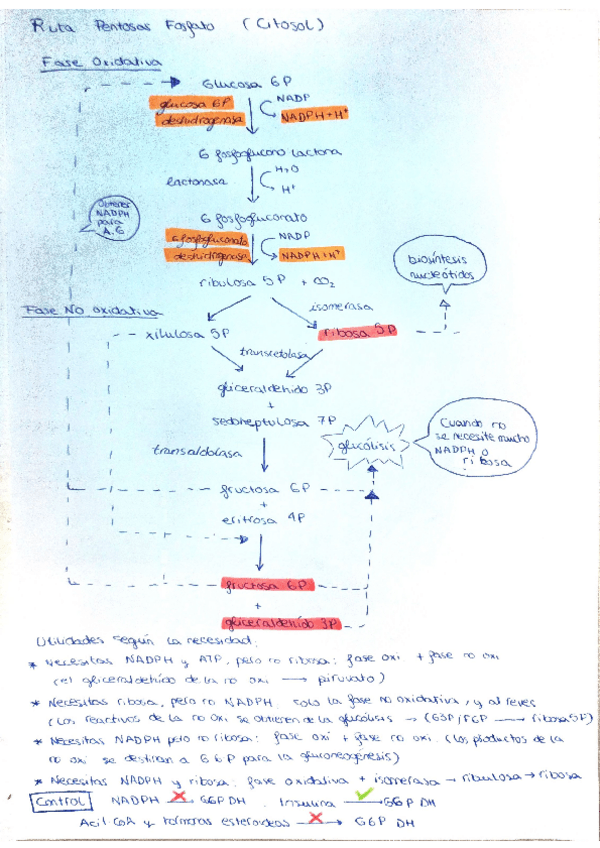 Ruta Pentosas Fosfato (Citosol)
Fase Oxidativa
Glucosa 6P
glucosa 6P
deshidrogenasa
NADP
NADPH+H⁺
6 fosfoglucono lactona
lactonasa
H₂O
H⁺
Obtener
NADPH
para
A.G
6 fosfogluconato
6 fosfogluconato
deshidrogenasa
NADP
NADPH+H⁺
ribulosa 5P + CO₂
biosíntesis
nucleótidos
Fase No oxidativa
isomerasa
xilulosa 5P
ribosa 5P
transcetolasa
gliceraldehido 3P
+
sedoheptulosa 7P
transaldolasa
glucólisis
Cuando no
se necesite mucho
NADPH o
ribosa
fructosa 6P
+
eritrosa 4P
fructosa 6P
+
gliceraldehído 3P
Utilidades según la necesidad:
* Necesitas NADPH y ATP, pero no ribosa: fase oxi + fase no oxi
(el gliceraldehído de la no oxi → piruvato)
* Necesitas ribosa, pero no NADPH. solo la fase no oxidativa, y al revés
(Los reactivos de la no oxi se obtienen de la glucólisis → (G3P/F6P → ribosa 5P)
* Necesitas NADPH pero no ribosa: fase oxi + fase no oxi. (los productos de la
no oxi se destinan a G6P para la gluconeogénesis)
* Necesitas NADPH y ribosa: fase oxidativa + isomerasa → ribulosa → ribosa
Control NADPH ❌→ G6P DH. Insulina ✓→ G6P DH
Acil CoA y hormonas esteroideas ❌→ G6P DH